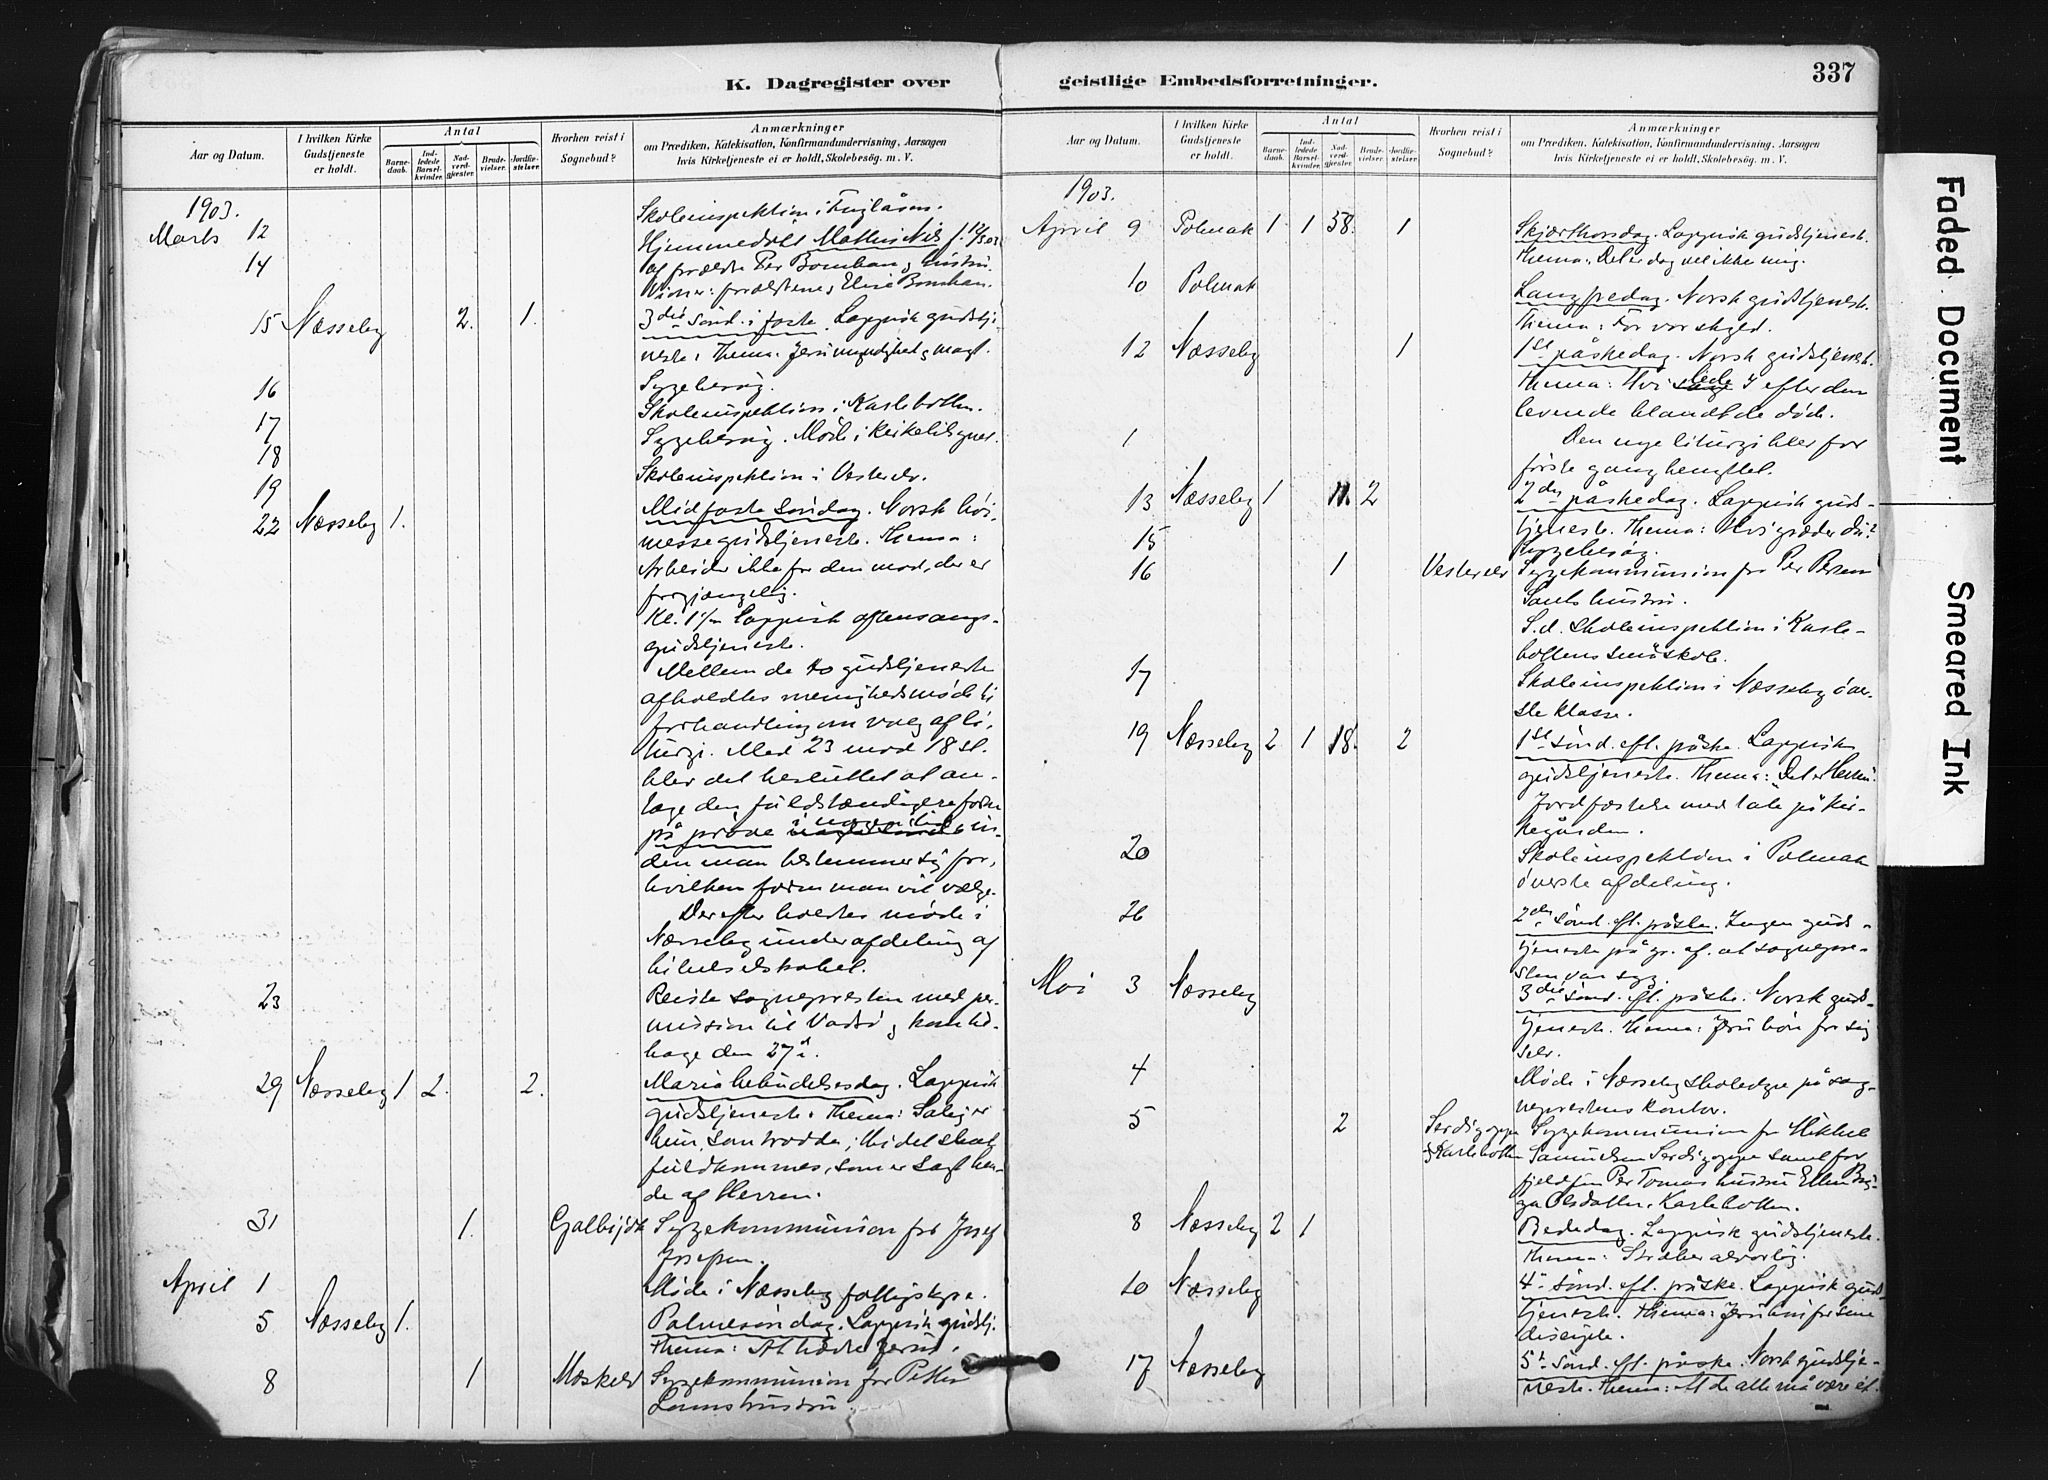 K. Dagregister over
geistlige Embedsforretninger.
337
Aar og Datum.
I hvilken Kirke Gudstjeneste er holdt.
Antal
Barnedaab.
Indledede Barselkvinder.
Nadverdgjester.
Brudevielser.
Jordfæstelser.
Hvorhen reist i Sognebud?
Anmærkninger
om Prædiken, Katekisation, Konfirmandundervisning, Aarsagen
hvis Kirketjeneste ei er holdt, Skolebesøg. m. V.
1903.
Marts 12 Skoleinspektion i
14 Hjemmedøbt Mathis Nils f.
af forældre Per Bomban og hustru.
forældrene, Elise Bomban.
15 Næsseby 2. 1. 3die sønd. i faste. Lappisk gudstje-
neste. Thema: Jesu myndighet og magt.
16 Sygebesøg.
17 Skoleinspektion i Karlebotten.
18 Sygebesøg. Møde i
19 Skoleinspektion i Vesterelv.
22 Næsseby 1. Midfaste søndag. Norsk høi-
messegudstjeneste. Thema:
Arbeider ikke for den mad, der er
forgjængelig.
Kl. Lappisk aftensangs-
gudstjeneste.
Mellem de to gudstjenester
afholdtes menighedsmøde til
forhandling om valg af li-
turgi. Med 23 mod 18 st.
blev det besluttet at an-
tage den fuldstændigere form
på prøve i nogen tid in-
den man bestemmer sig for,
hvilken form man vil vælge.
Derefter holdtes møde i
Næsseby underafdeling af
bibelselskabet.
23 Reiste sognepresten med per-
mission til Vadsø og kom til-
bage den 27de.
29 Næsseby 1 2. 2. Maria bebudelsesdag. Lappisk
gudstjeneste. Thema: Salig er
hun, som trodde; thi det skal
fuldkommes, som er sagt hen-
de af Herren.
31 1. Galbijok Sygekommunion for Josef
Josefsen.
April 1 Møde i Næsseby fattigstyre.
5 Næsseby 1. Palmesøndag. Lappisk gudstj.
Thema: At hædre Jesus.
8 1 Møskelv Sygekommunion for Petter
hustru.
Aar og Datum.
I hvilken Kirke Gudstjeneste er holdt.
Antal
Barnedaab.
Indledede Barselkvinder.
Nadverdgjester.
Brudevielser.
Jordfæstelser.
Hvorhen reist i Sognebud?
Anmærkninger
om Prædiken, Katekisation, Konfirmandundervisning, Aarsagen
hvis Kirketjeneste ei er holdt, Skolebesøg. m. V.
1903.
April 9 Polmak 1 1 58. 1 Skjærthorsdag. Lappisk gudstjeneste.
Thema: Det er dog vel ikke mig.
10 Polmak Langfredag. Norsk gudstjeneste.
Thema: For vor skyld.
12 Næsseby 1 1ste påskedag. Norsk gudstjeneste.
Thema: Hvi lede I efter den
levende blandt de døde.
1 Den nye liturgi blev for
første gang benyttet.
13 Næsseby 1 11. 2 2den påskedag. Lappisk guds-
tjeneste. Thema: Hvi græder du?
15 Sygebesøg.
16 1 Vesterelv Sygekommunion for Per Persen
hustru.
S.d. skoleinspektion i Karle-
bottens småskole.
17 Skoleinspektion i Næsseby øver-
ste klasse.
19 Næsseby 2 1 18. 2 1ste sønd. eft. påske. Lappisk
gudstjeneste. Thema: Det er Herren.
Jordfæstelse med tale på kir-
kegården.
20 Skoleinspektion i Polmak
øverste afdeling.
26 2den sønd. eft. påske. Ingen guds-
tjeneste på gr. af. at sognepre-
sten var syg.
Mai 3 Næsseby 3die sønd. eft. påske. Norsk guds-
tjeneste. Thema: Jesu bøn for sig
selv.
4 Møde i Næsseby skolestyre på sog-
neprestens kontor.
5 2 og Karlebotten Sygekommunion for Mikkel
Samuelsen samt for
Per Tomas hustru Ellen
Olsdatter, Karlebotten.
8 Næsseby 2 1 Bededag. Lappisk gudstjeneste.
Thema: Stræber alvorlig.
10 Næsseby 4de sønd. eft. påske. Lappisk guds-
tjeneste. Thema: Jesu bøn for sine
disciple.
17 Næsseby 5te sønd. eft. påske. Norsk gudstje-
neste. Thema: At de alle må være ét.
Faded Document
Smeared Ink